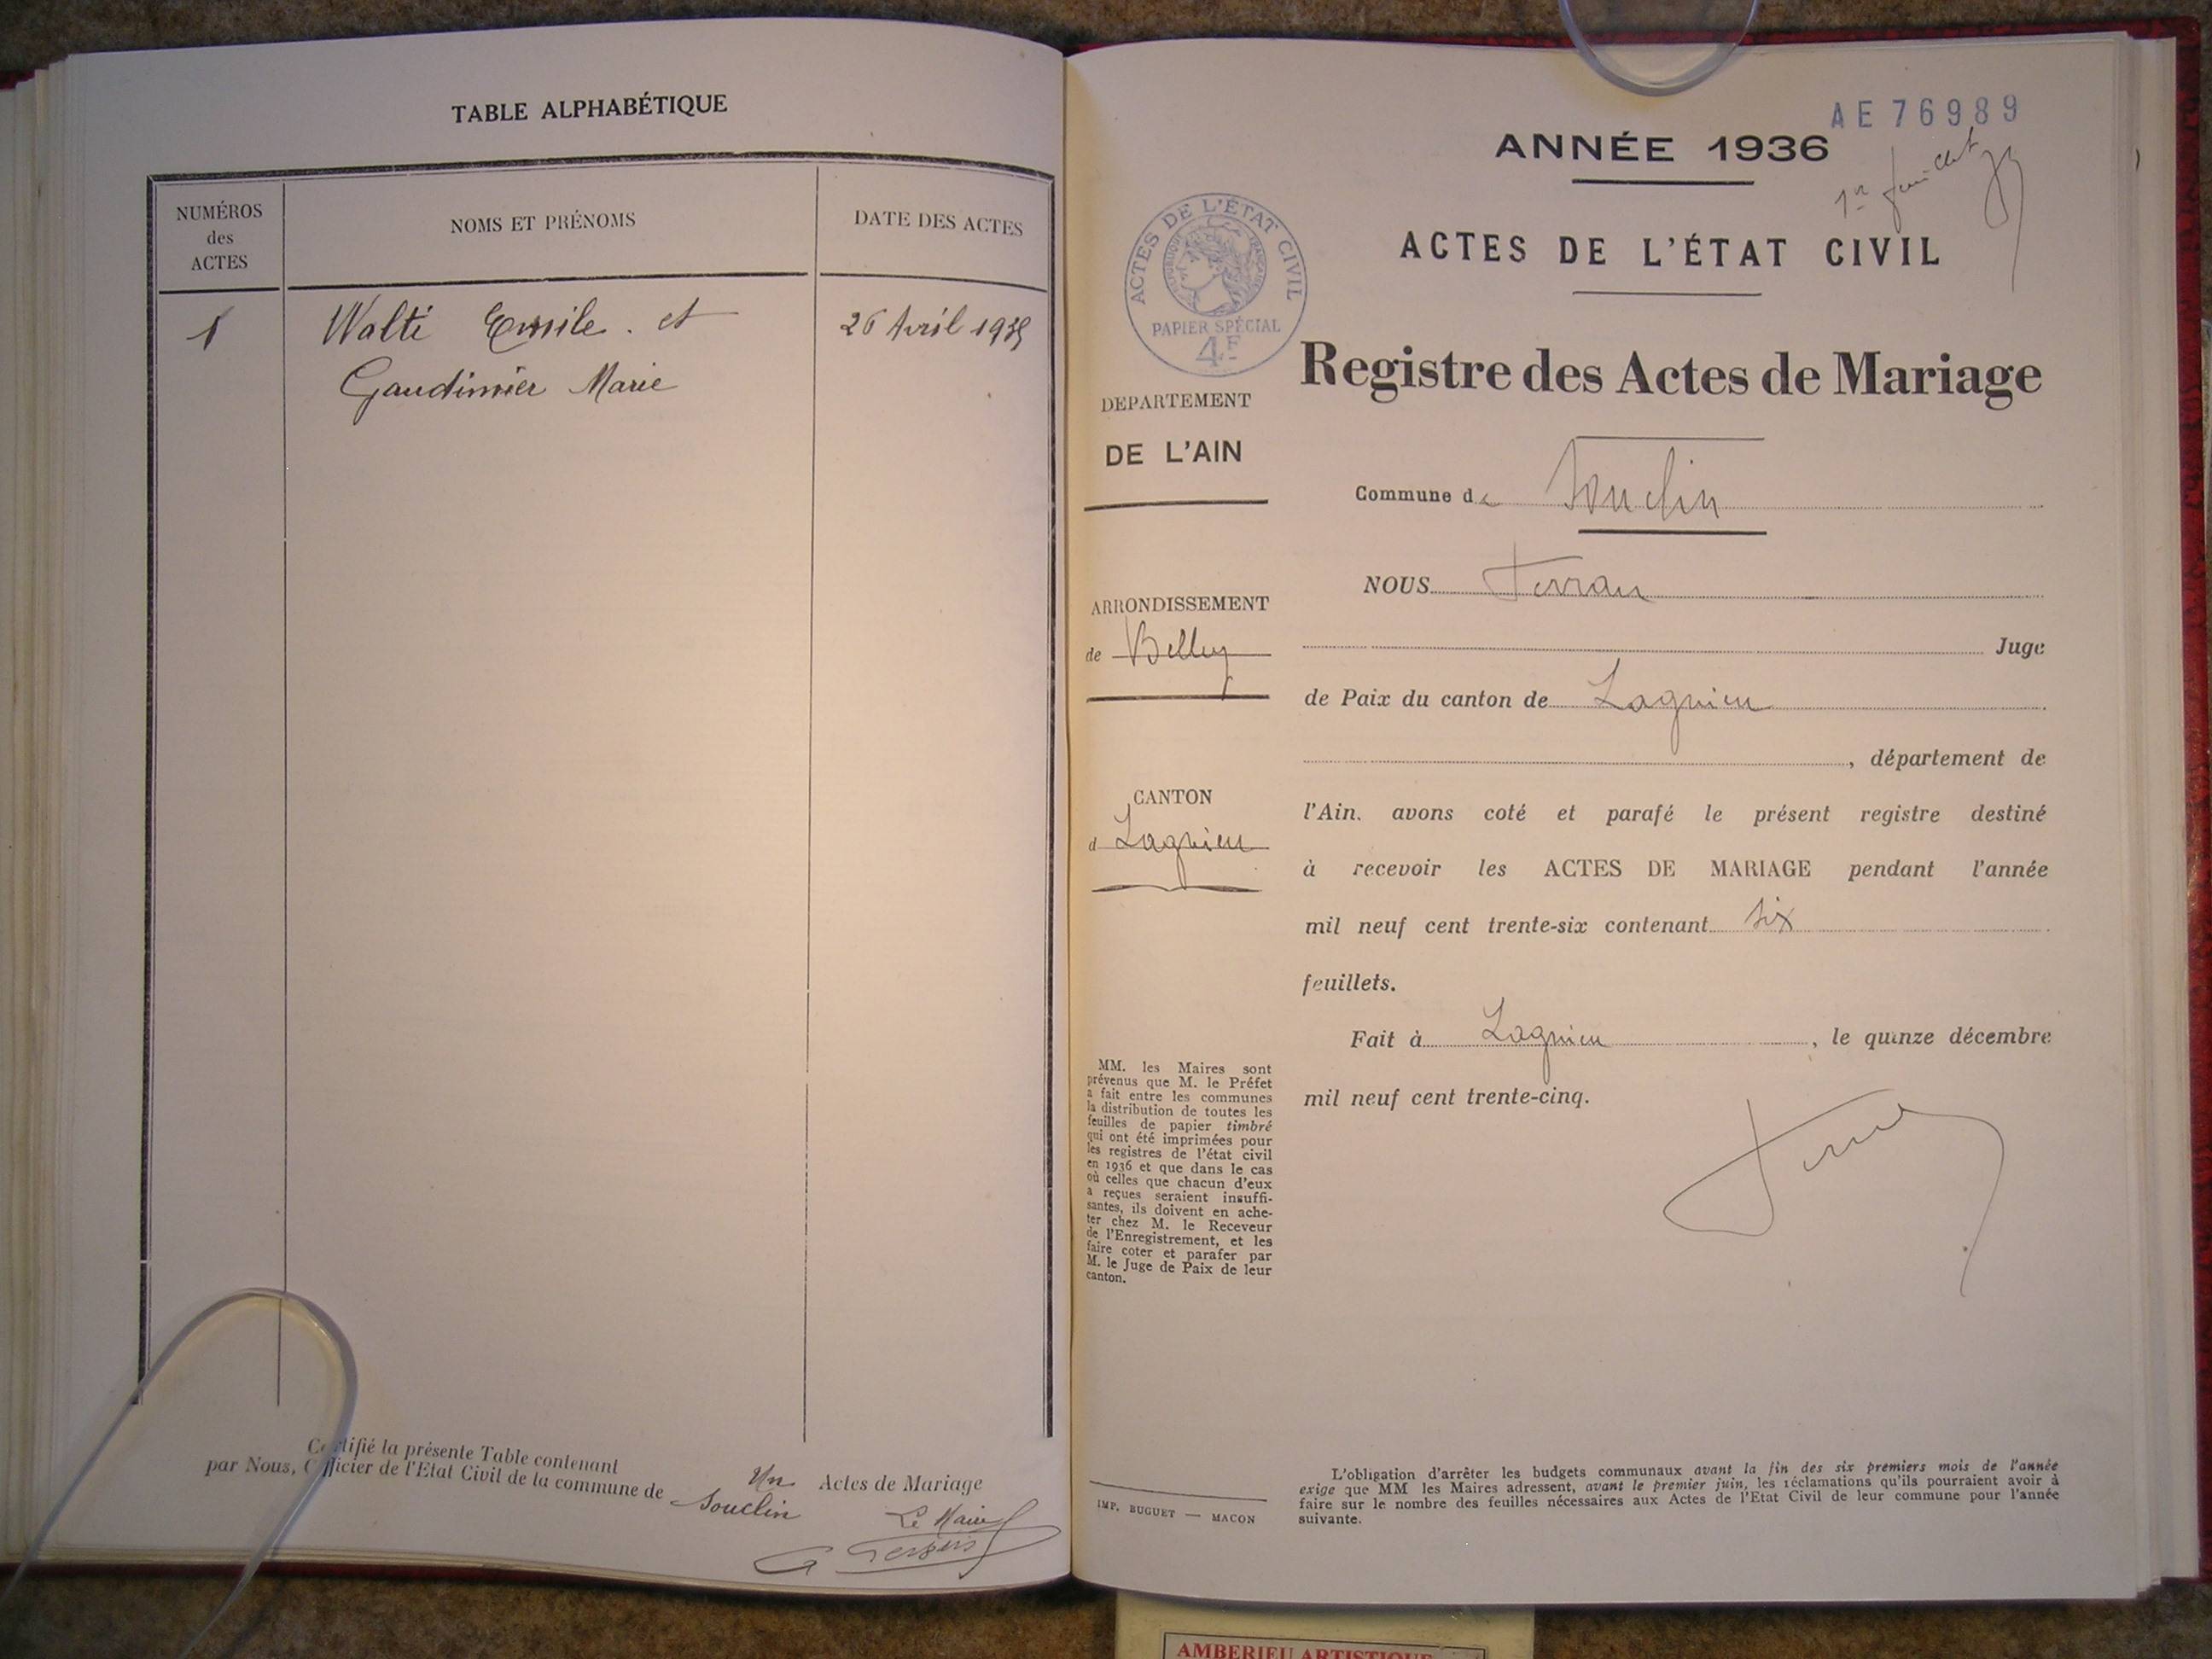 TABLE ALPHABÉTIQUE
NUMÉROS
des
ACTES
NOMS ET PRÉNOMS
DATE DES ACTES
1
Walti Emile . et
26 Avril 1935
Gaudimier Marie
Certifié la présente Table contenant Un Actes de Mariage
par Nous, Officier de l'Etat Civil de la commune de Souclin
Le Maire
AE 76989
ANNÉE 1936
1er feuillet
ACTES DE L'ÉTAT CIVIL
ACTES DE L'ÉTAT CIVIL
RÉPUBLIQUE FRANÇAISE
PAPIER SPÉCIAL
4F
Registre des Actes de Mariage
DEPARTEMENT
DE L'AIN
Commune de Souclin
ARRONDISSEMENT
de Belley
CANTON
d Lagnieu
NOUS Ferran
Juge
de Paix du canton de Lagnieu
, département de
l'Ain. avons coté et parafé le présent registre destiné
à recevoir les ACTES DE MARIAGE pendant l'année
mil neuf cent trente-six contenant six
feuillets.
Fait à Lagnieu , le quinze décembre
mil neuf cent trente-cinq.
MM. les Maires sont
prévenus que M. le Préfet
a fait entre les communes
la distribution de toutes les
feuilles de papier timbré
qui ont été imprimées pour
les registres de l'état civil
en 1936 et que dans le cas
où celles que chacun d'eux
a reçues seraient insuffi-
santes, ils doivent en ache-
ter chez M. le Receveur
de l'Enregistrement, et les
faire coter et parafer par
M. le Juge de Paix de leur
canton.
IMP. BUGUET — MACON
L'obligation d'arrêter les budgets communaux avant la fin des six premiers mois de l'année
exige que MM les Maires adressent, avant le premier juin, les réclamations qu'ils pourraient avoir à
faire sur le nombre des feuilles nécessaires aux Actes de l'Etat Civil de leur commune pour l'année
suivante.
AMBERIEU ARTISTIQUE